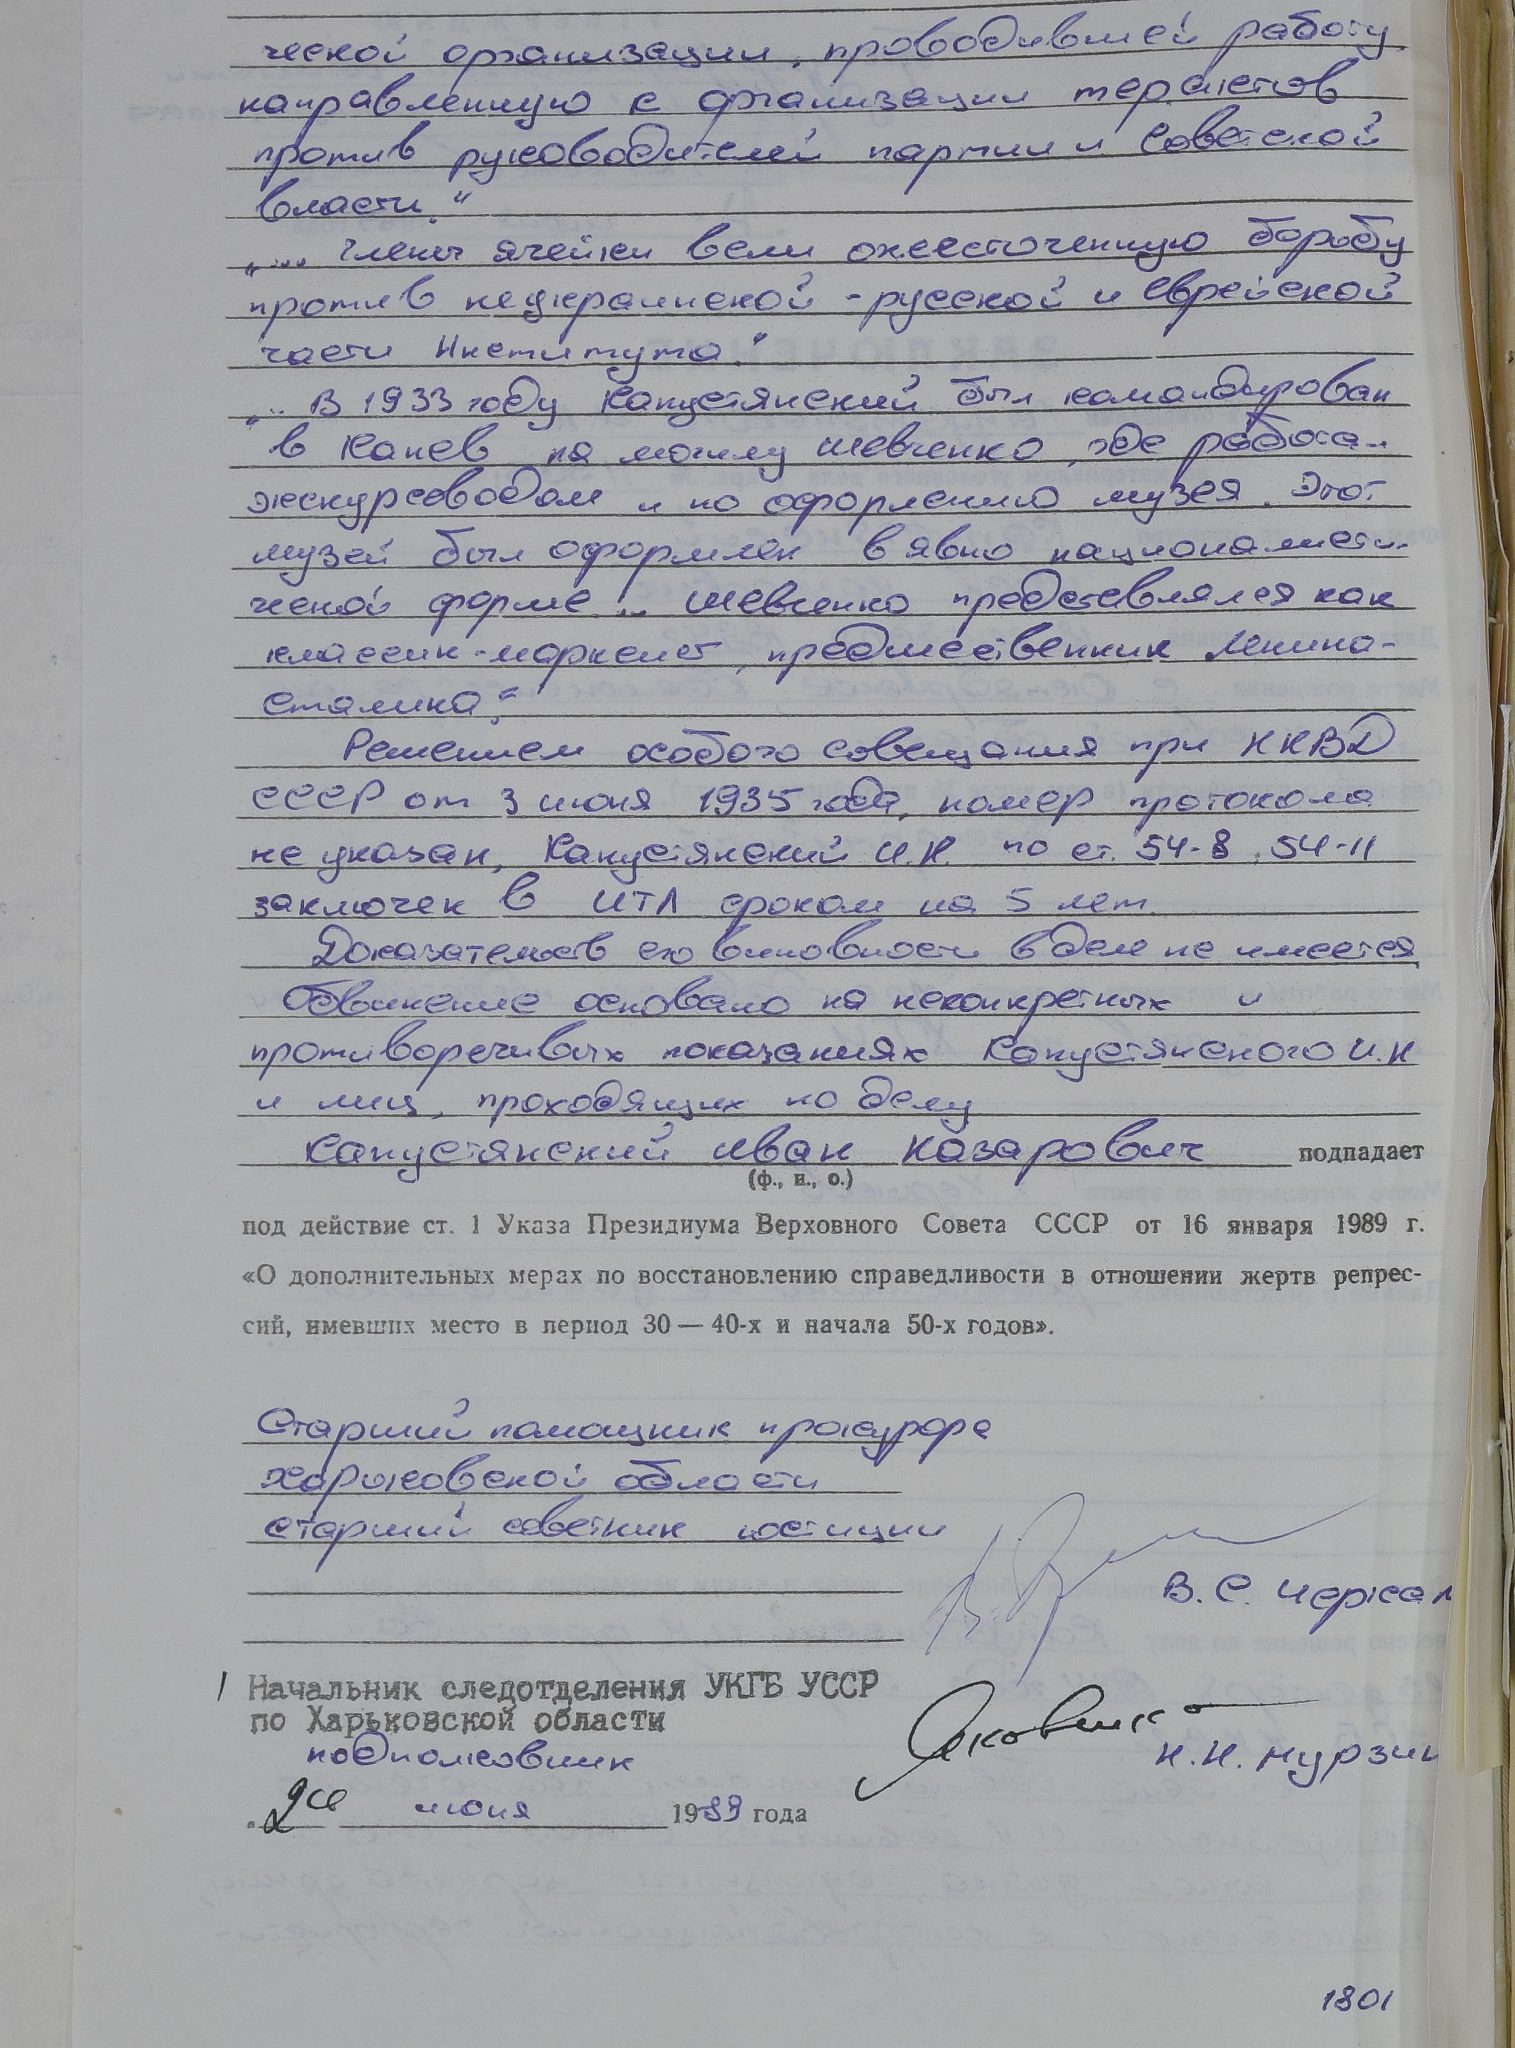 ческой организации, проводившей работу
направленную к организации терактов
против руководителей партии и Советской
власти."
„... члены ячейки вели ожесточенную борьбу
против неукраинской - русской и еврейской
части Института."
„... В 1933 году Капустянский был командирован
в Канев на могилу Шевченко, где работал
экскурсоводом и по оформлению музея. Этот
музей был оформлен в явно националисти-
ческой форме ... Шевченко представлялся как
классик-марксист, предшественник Ленина-
Сталина."
Решением особого совещания при НКВД
СССР от 3 июня 1935 года, номер протокола
не указан, Капустянский И.Н. по ст. 54-8, 54-11
заключен в ИТЛ сроком на 5 лет.
Доказательств его виновности в деле не имеется
Обвинение основано на неконкретных и
противоречивых показаниях Капустянского И.Н
и лиц, проходящих по делу
Капустянский Иван Назарович подпадает
(ф., и., о.)
под действие ст. 1 Указа Президиума Верховного Совета СССР от 16 января 1989 г.
«О дополнительных мерах по восстановлению справедливости в отношении жертв репрес-
сий, имевших место в период 30 — 40-х и начала 50-х годов».
Старший помощник прокурора
Харьковской области
старший советник юстиции
В. С.
Начальник следотделения УКГБ УССР
по Харьковской области
подполковник
Н.Н. Мурзин
июня 1989 года
1801